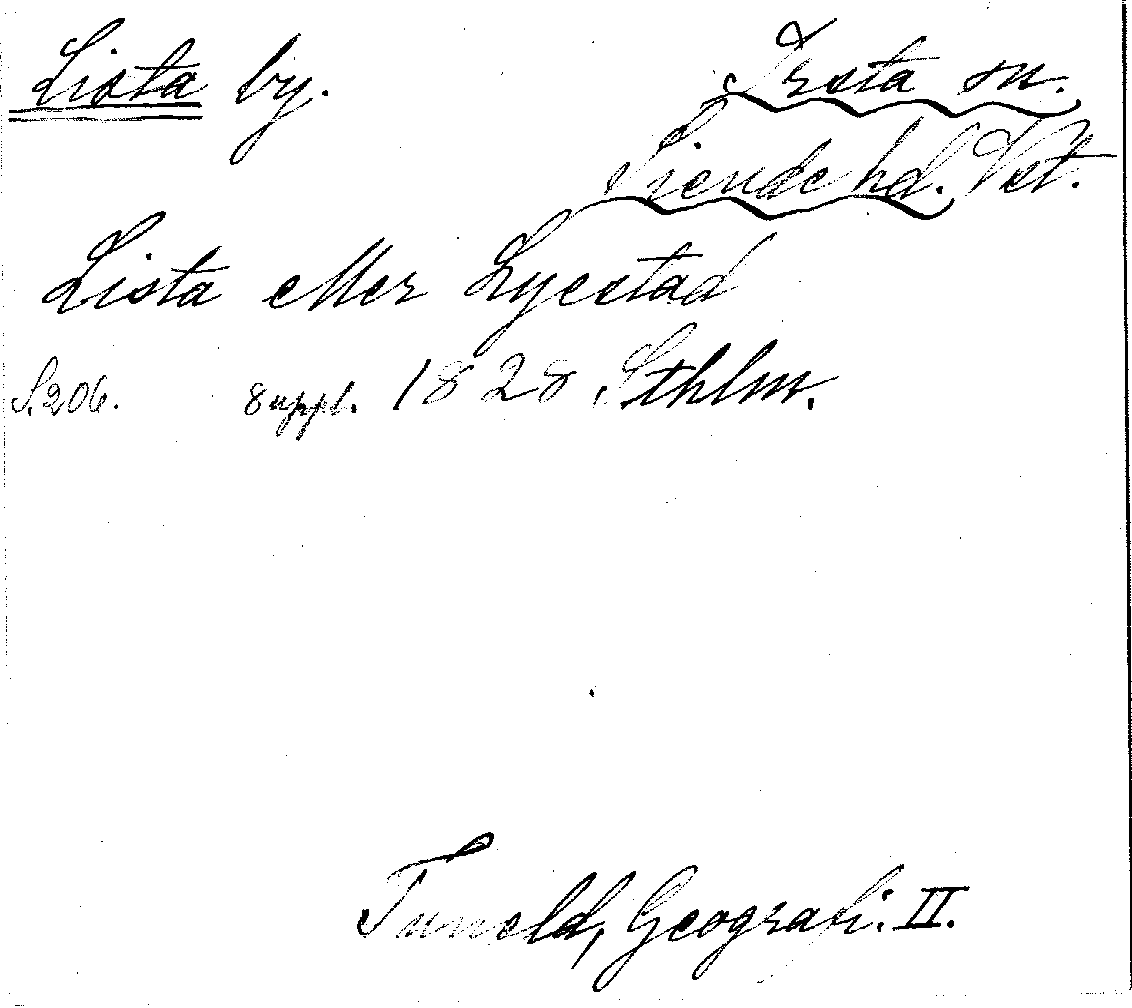 Lista by. Irsta sn.
Siende hd. Vst.
Lista eller Lyestad
S. 206. 8 uppl. 1828 Sthlm.
Tuneld, Geografi. II.